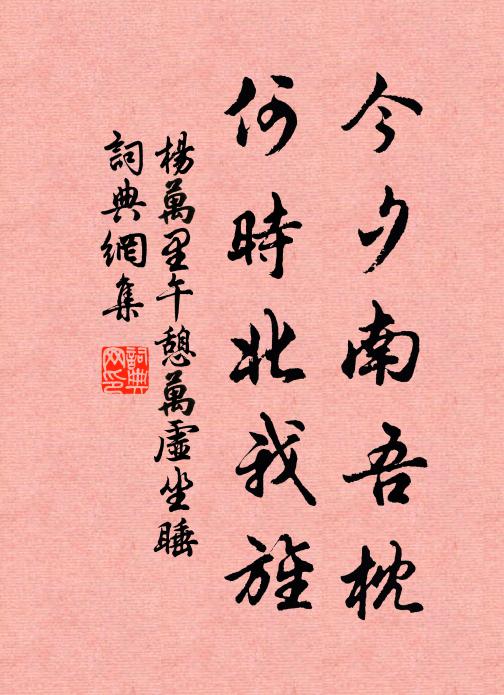 今夕南吾枕
何時北我旌
楊萬里午憩萬虛坐睡
詞典網集
詞典網印